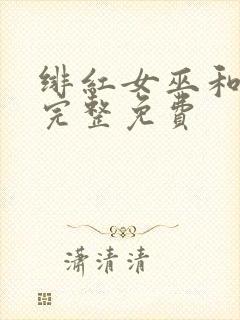 绯红女巫和
完整免费
潇清清